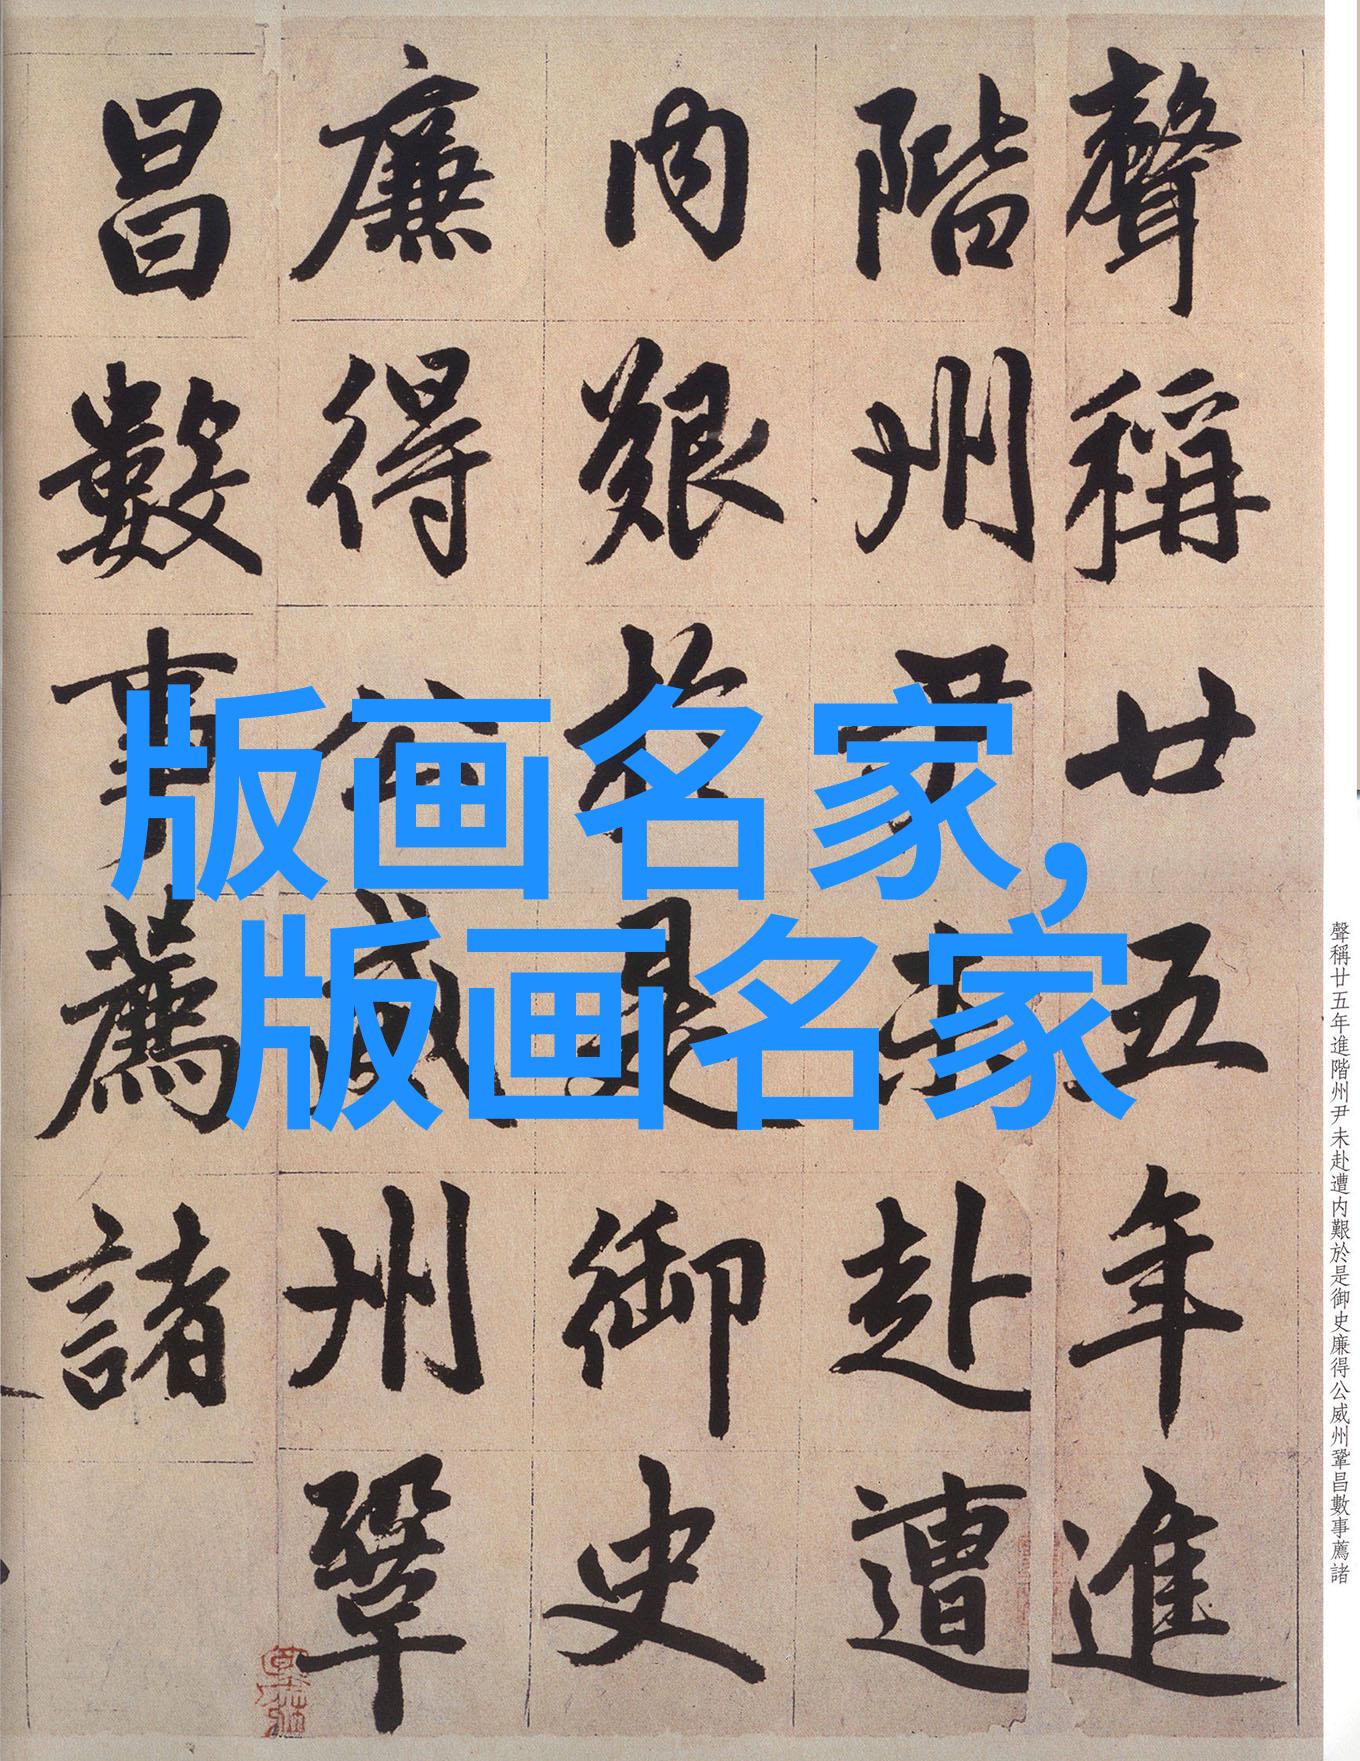 聲稱廿五年進
階州尹未赴遭
内艱於是御史
廉得公威州鞏
昌數事薦諸
版画名家，
版画名家
聲稱廿五年進階州尹未赴遭内艱於是御史廉得公威州鞏昌數事薦諸